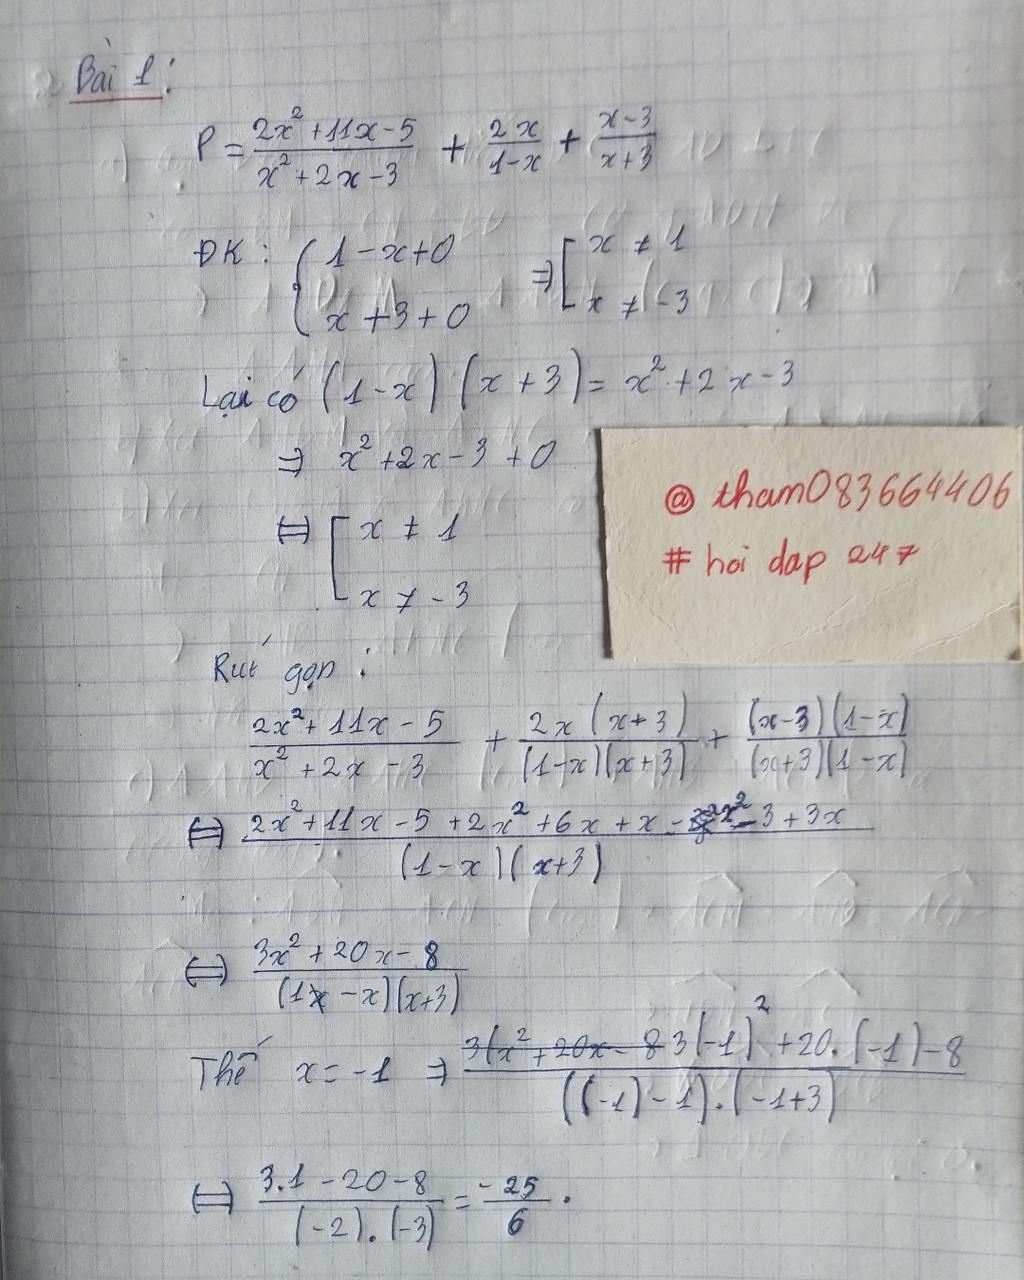 Bài 1:
P = \frac{2x^2+11x-5}{x^2+2x-3} + \frac{2x}{1-x} + \frac{x-3}{x+3}
ĐK: { 1-x+0 ⇒ [ x ≠ 1
x+3+0 x ≠ -3
Lại có (1-x)(x+3) = x^2+2x-3
⇒ x^2+2x-3+0
⇔ [ x ≠ 1
x ≠ -3
@ tham083664406
# hoi dap 247
Rút gọn:
\frac{2x^2+11x-5}{x^2+2x-3} + \frac{2x(x+3)}{(1-x)(x+3)} + \frac{(x-3)(1-x)}{(x+3)(1-x)}
⇔ \frac{2x^2+11x-5+2x^2+6x+x-x^2-3+3x}{(1-x)(x+3)}
⇔ \frac{3x^2+20x-8}{(1-x)(x+3)}
Thế x=-1 ⇒ \frac{3(-1)^2+20.(-1)-8}{((-1)-1).(-1+3)}
⇔ \frac{3.1-20-8}{(-2).(-3)} = \frac{-25}{6}.